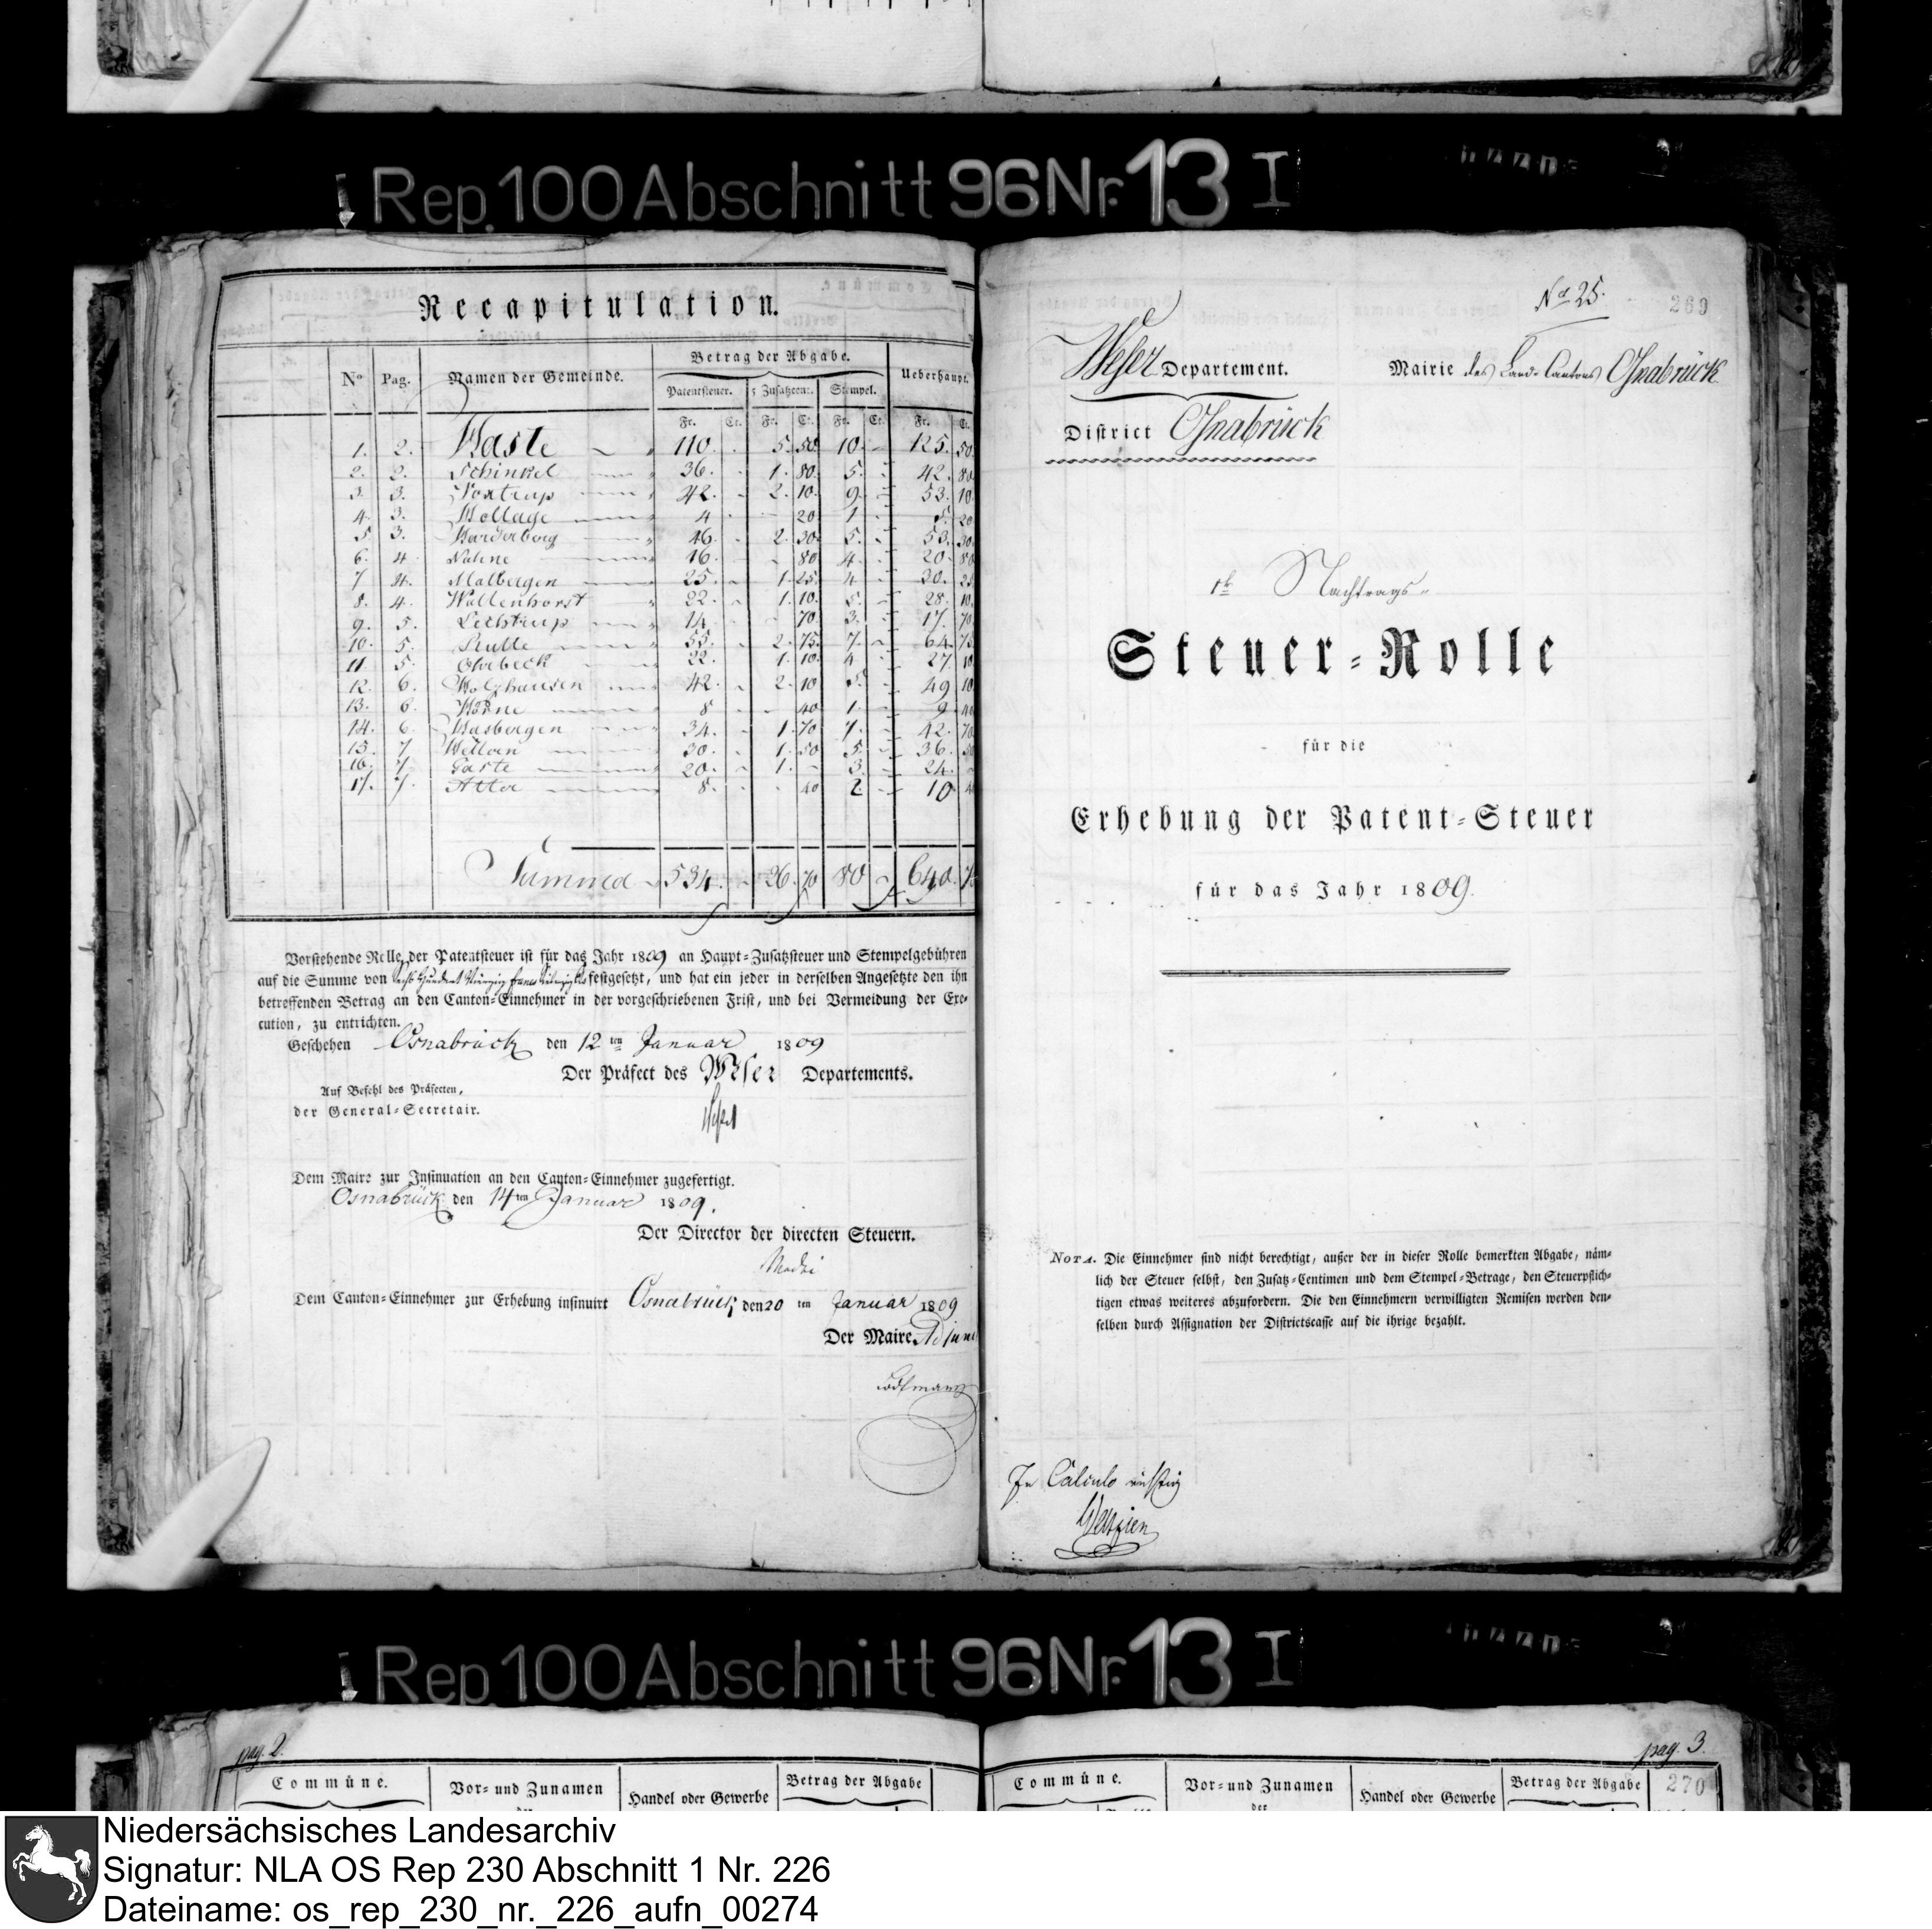 Rep. 100 Abschnitt 96 Nr. 13 I
Recapitulation.
Nº Pag. Namen der Gemeinde. Betrag der Abgabe. Ueberhaupt.
Patentsteuer. 5 Zusatzcent. Stempel.
Fr. Ct. Fr. Ct. Fr. Ct. Fr. Ct.
1. 2. Haste 110. - 5. 50 10. - 125. 50
2. 2. Schinkel 36. - 1. 80. 5. - 42. 80
3. 3. Voxtrup 42. - 2. 10. 9. - 53. 10
4. 3. Hollage 4 - - 20 1 - 5. 20
5 3. Harderberg 46. - 2. 30. 5. - 53. 30
6. 4. Nahne 16. - - 80 4. - 20. 80
7 4. Malbergen 25. - 1. 25. 4 - 30. 25
8. 4. Wallenhorst 22. - 1. 10. 5. - 28. 10
9. 5. Lechtrup 14. - - 70 3. - 17. 70
10. 5. Rulle 55. - 2. 75. 7. - 64. 75
11. 5. Ohrbeck 22. - 1. 10. 4. - 27. 10
12. 6. Holzhausen 42. - 2. 10 5. - 49 10
13. 6. Hörne 8 - - 40 1. - 9. 40
14. 6. Hasbergen 34. - 1. 70 7. - 42. 70
15. 7 Hellern 30. - 1. 50 5. - 36. 50
16. 7. Gaste 20. - 1. - 3. - 24. -
17. 7. Atter 8. - - 40 2. - 10 40
Summa 534. - 26. 70 80 - 640. 70
Vorstehende Rolle der Patentsteuer ist für das Jahr 1809 an Haupt-Zusatzsteuer und Stempelgebühren
auf die Summe von sechs Hundert Vierzig Francs siebenzig Cts festgesetzt, und hat ein jeder in derselben Angesetzte den ihn
betreffenden Betrag an den Canton-Einnehmer in der vorgeschriebenen Frist, und bei Vermeidung der Exe-
cution, zu entrichten.
Geschehen Osnabrück den 12ten Januar 1809
Der Präfect des Weser Departements.
Auf Befehl des Präfecten,
der General-Secretair.
Dem Maire zur Insinuation an den Canton-Einnehmer zugefertigt.
Osnabrück den 14ten Januar 1809.
Der Director der directen Steuern.
Dem Canton-Einnehmer zur Erhebung insinuirt Osnabrück den 20ten Januar 1809
Der Maire Adjunct
Nº 25.
269
Weser Departement. Mairie des Land-Cantons Osnabrück
District Osnabrück
1te Nachtrags-
Steuer-Rolle
für die
Erhebung der Patent-Steuer
für das Jahr 1809.
NOTA. Die Einnehmer sind nicht berechtigt, außer der in dieser Rolle bemerkten Abgabe, näm-
lich der Steuer selbst, den Zusatz-Centimen und dem Stempel-Betrage, den Steuerpflich-
tigen etwas weiteres abzufordern. Die den Einnehmern verwilligten Remisen werden den-
selben durch Assignation der Districtscasse auf die ihrige bezahlt.
In Calculo richtig
Rep. 100 Abschnitt 96 Nr. 13 I
pag. 2.
Commüne. Vor- und Zunamen Handel oder Gewerbe Betrag der Abgabe
pag. 3.
Commüne. Vor- und Zunamen der Handel oder Gewerbe Betrag der Abgabe 270
Niedersächsisches Landesarchiv
Signatur: NLA OS Rep 230 Abschnitt 1 Nr. 226
Dateiname: os_rep_230_nr._226_aufn_00274